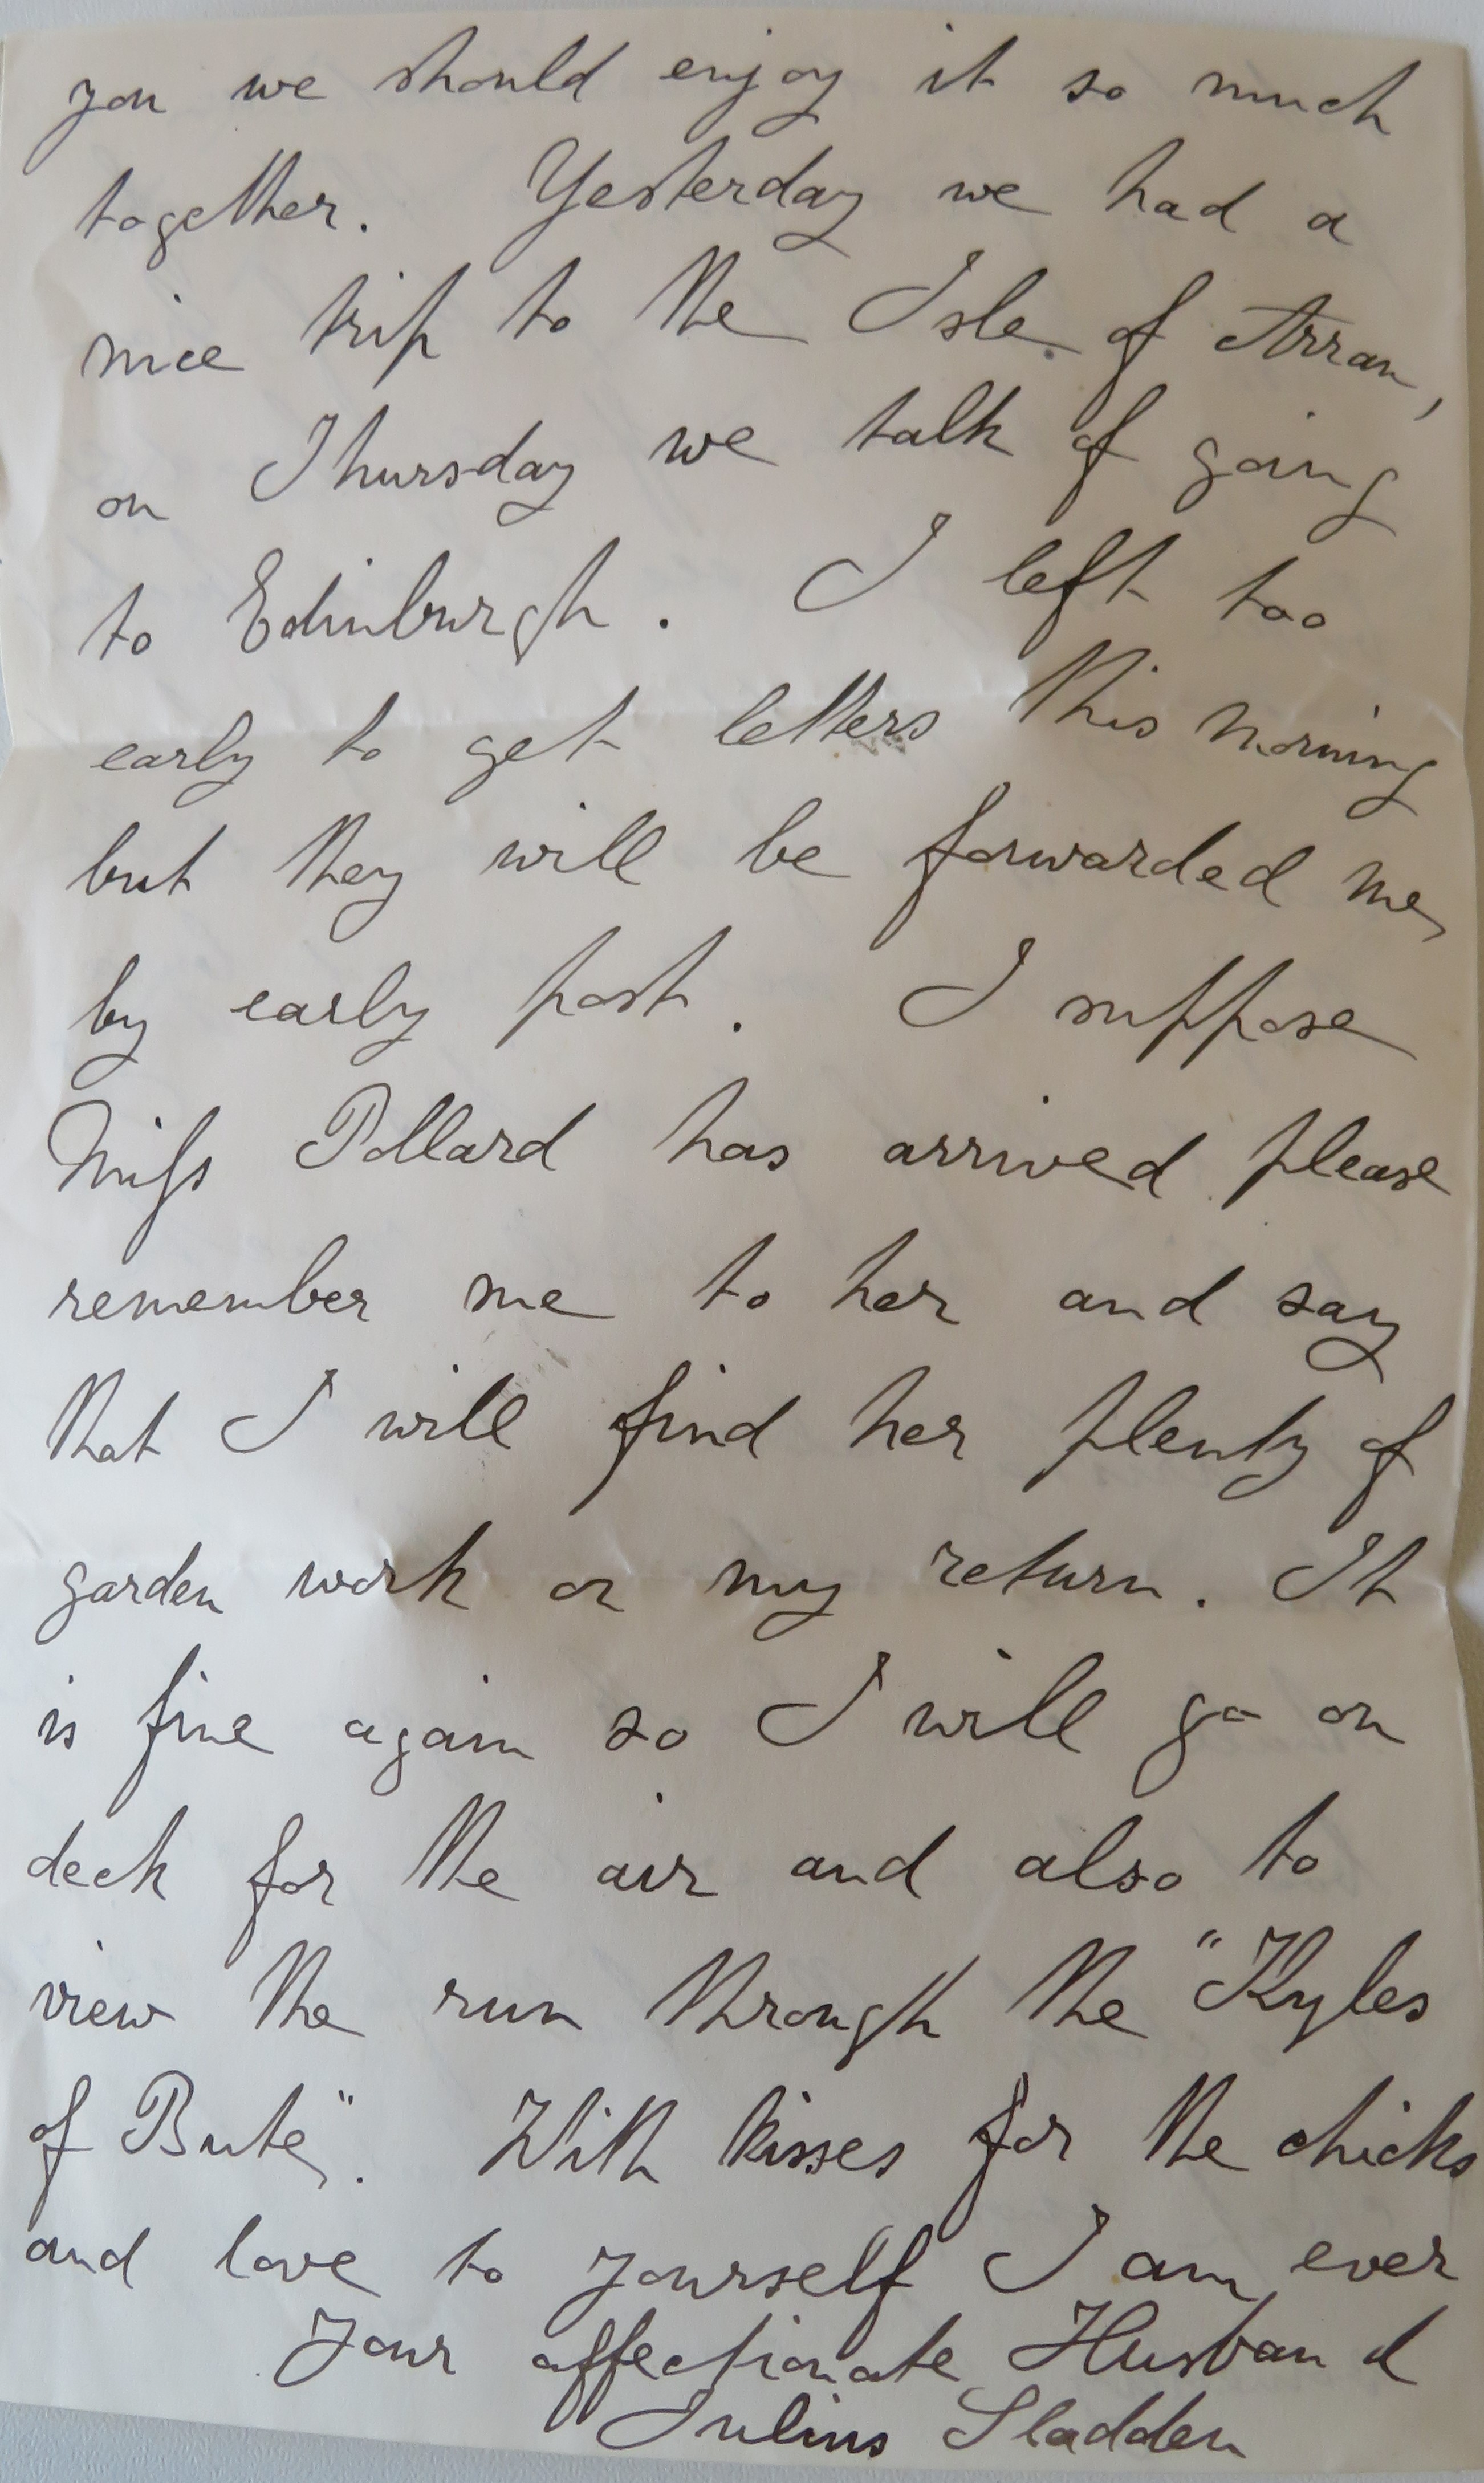 you we should enjoy it so much
together. Yesterday we had a
nice trip to the Isle of Arran,
on Thursday we talk of going
to Edinburgh. I left too
early to get letters this morning
but they will be forwarded me
by early post. I suppose
Miſs Pollard has arrived please
remember me to her and say
that I will find her plenty of
garden work on my return. It
is fine again so I will go on
deck for the air and also to
view the run through the "Kyles
of Bute". With kisses for the chicks
and love to yourself I am ever
Your affectionate Husband
Julius Sladden